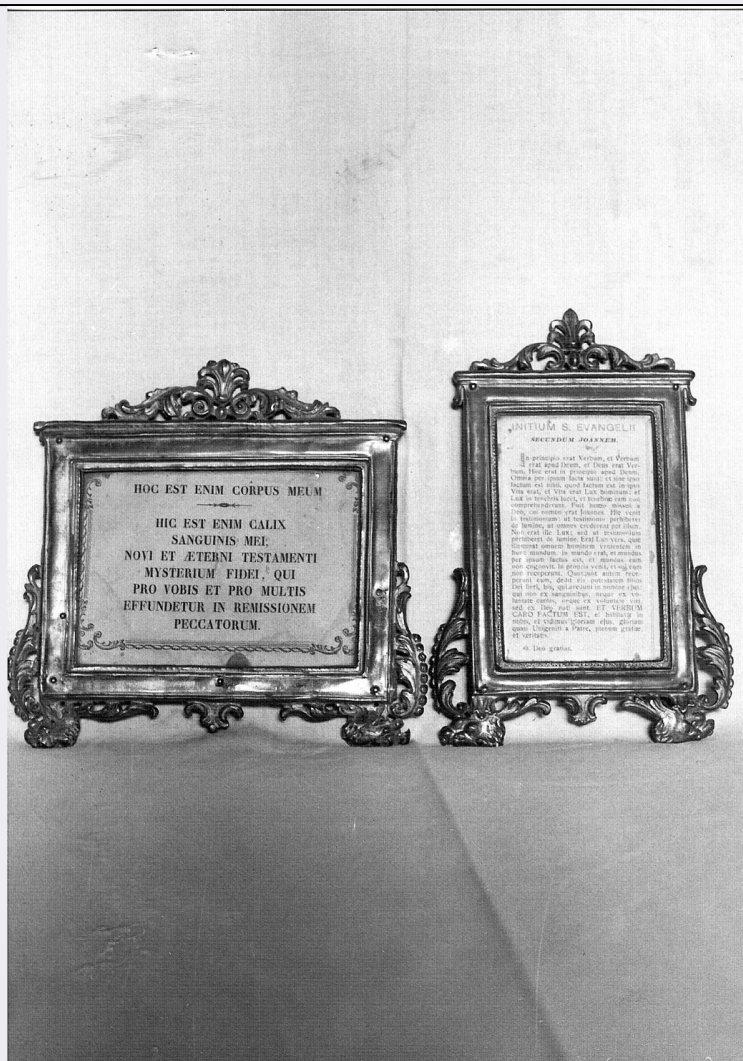 HOC EST ENIM CORPUS MEUM
HIC EST ENIM CALIX
SANGUINIS MEI;
NOVI ET ÆTERNI TESTAMENTI
MYSTERIUM FIDEI, QUI
PRO VOBIS ET PRO MULTIS
EFFUNDETUR IN REMISSIONEM
PECCATORUM.
INITIUM S. EVANGELII
SECUNDUM JOANNEM.
In principio erat Verbum, et Verbum
erat apud Deum, et Deus erat Ver-
bum. Hoc erat in principio apud Deum.
Omnia per ipsum facta sunt: et sine ipso
factum est nihil, quod factum est in ipso
Vita erat, et Vita erat Lux hominum: et
Lux in tenebris lucet, et tenebræ eam non
comprehenderunt. Fuit homo missus a
Deo, cui nomen erat Joannes. Hic venit
in testimonium: ut testimonium perhiberet
de lumine, ut omnes crederent per illum.
Non erat ille Lux; sed ut testimonium
perhiberet de lumine. Erat Lux vera, quæ
illuminat omnem hominem venientem in
hunc mundum. In mundo erat, et mundus
per ipsum factus est, et mundus eum
non cognovit. In propria venit, et sui eum
non receperunt. Quotquot autem rece-
perunt eum, dedit eis potestatem filios
Dei fieri, his, qui credunt in nomine ejus:
qui non ex sanguinibus, neque ex vo-
luntate carnis, neque ex voluntate viri,
sed ex Deo nati sunt. ET VERBUM
CARO FACTUM EST, et habitavit in
nobis, et vidimus gloriam ejus, gloriam
quasi Unigeniti a Patre, plenum gratiæ
et veritatis.
Deo gratias.